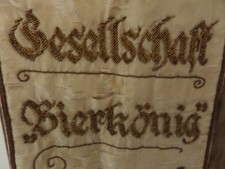 Gesellschaft
„Bierkönig"